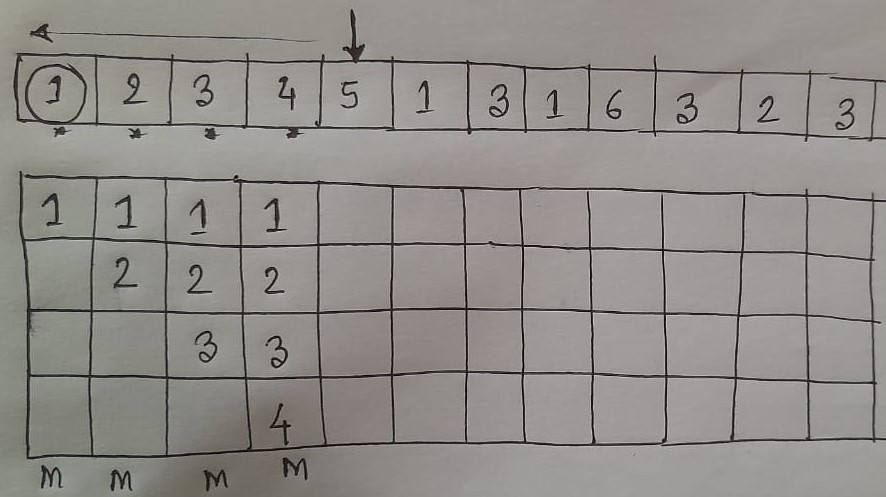 1 2 3 4 5 1 3 1 6 3 2 3
* * * *
1 1 1 1
2 2 2
3 3
4
M M M M